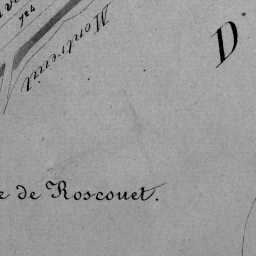 Montreuil
D
e de Roscouet.